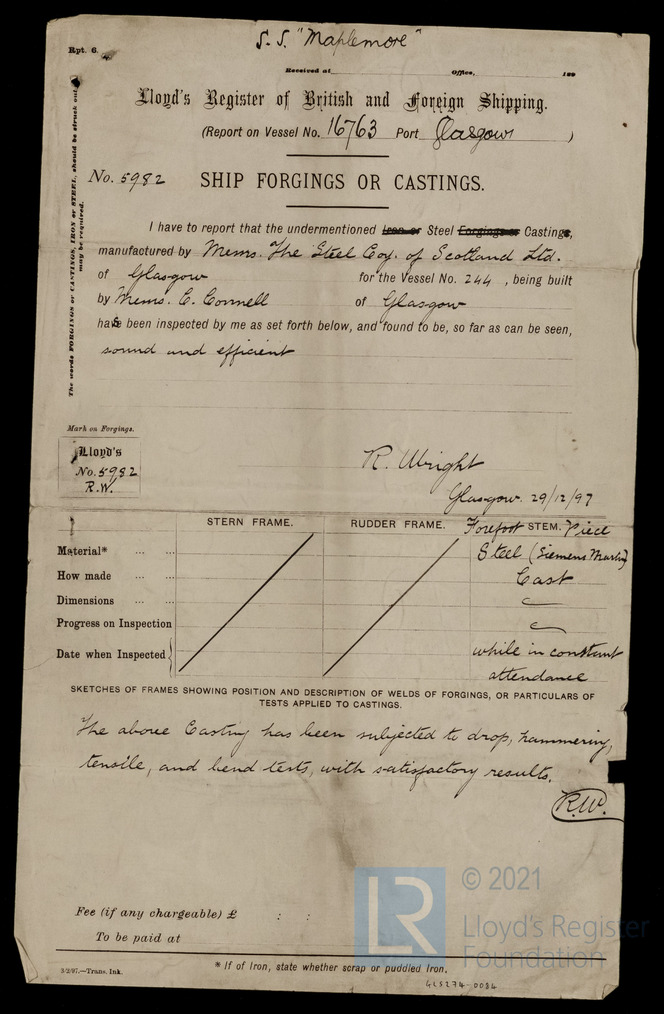 S.S. "Maplemore"
Rpt. 6.
Received at Office, 189
Lloyd's Register of British and Foreign Shipping.
(Report on Vessel No. 16763 Port Glasgow )
The words FORGINGS or CASTINGS, IRON or STEEL, should be struck out as
may be required.
No. 5982 SHIP FORGINGS OR CASTINGS.
I have to report that the undermentioned Iron or Steel Forgings or Castings,
manufactured by Messrs. The Steel Coy. of Scotland Ltd.
of Glasgow for the Vessel No. 244 , being built
by Messrs. C. Connell of Glasgow
has been inspected by me as set forth below, and found to be, so far as can be seen,
sound and efficient
Mark on Forgings.
Lloyd's
No. 5982
R.W.
R. Wright
Glasgow. 29/12/97
STERN FRAME. RUDDER FRAME. Forefoot STEM. Piece
Material* ... ... Steel (Siemens Martin)
How made ... ... Cast
Dimensions ... ...
Progress on Inspection
Date when Inspected while in constant
attendance
SKETCHES OF FRAMES SHOWING POSITION AND DESCRIPTION OF WELDS OF FORGINGS, OR PARTICULARS OF
TESTS APPLIED TO CASTINGS.
The above Casting has been subjected to drop, hammering,
tensile, and bend tests, with satisfactory results.
R.W.
Fee (if any chargeable) £ : :
To be paid at
3/2/97.—Trans. Ink.
* If of Iron, state whether scrap or puddled Iron.
GLS274-0084
LR © 2021
Lloyd's Register
Foundation